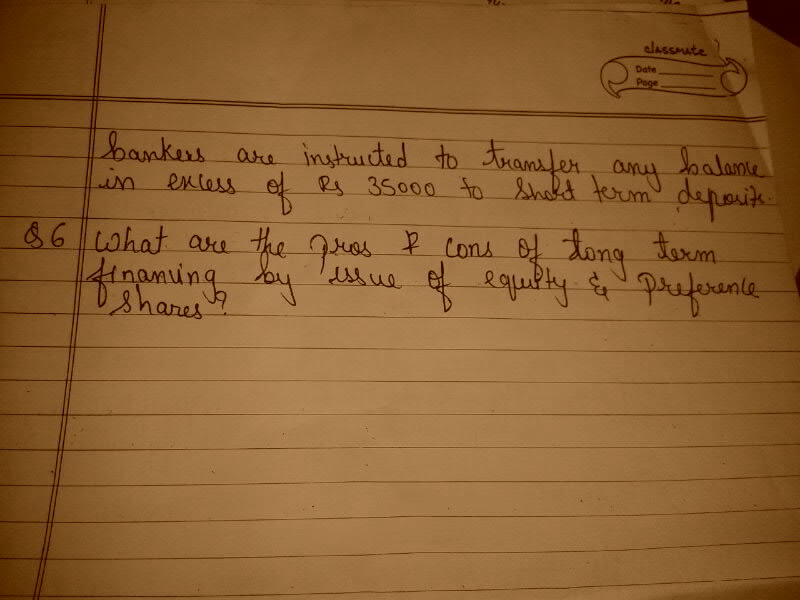 classmate
Date
Page
bankers are instructed to transfer any balance
in excess of Rs 35000 to short term deposits.
Q6 What are the pros & cons of long term
financing by issue of equity & preference
shares?